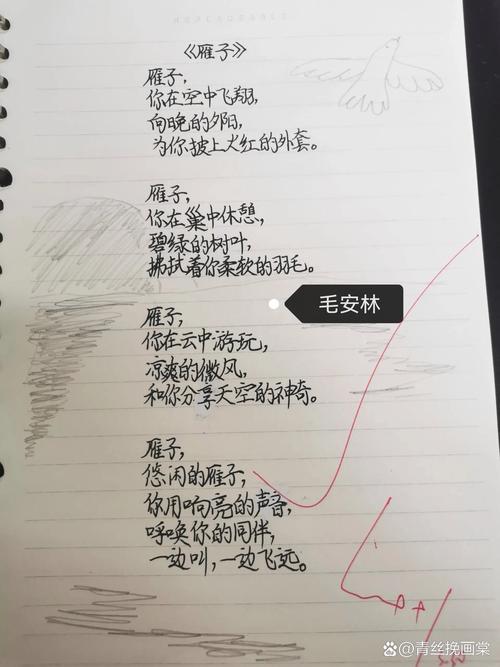 《雁子》
雁子，
你在空中飞翔，
向晚的夕阳，
为你披上火红的外套。
雁子，
你在巢中休憩，
碧绿的树叶，
拂拭着你柔软的羽毛。
毛安林
雁子，
你在云中游玩，
凉爽的微风，
和你分享天空的神奇。
雁子，
悠闲的雁子，
你用响亮的声音，
呼唤你的同伴，
一边叫，一边飞远。
@青丝挽画棠